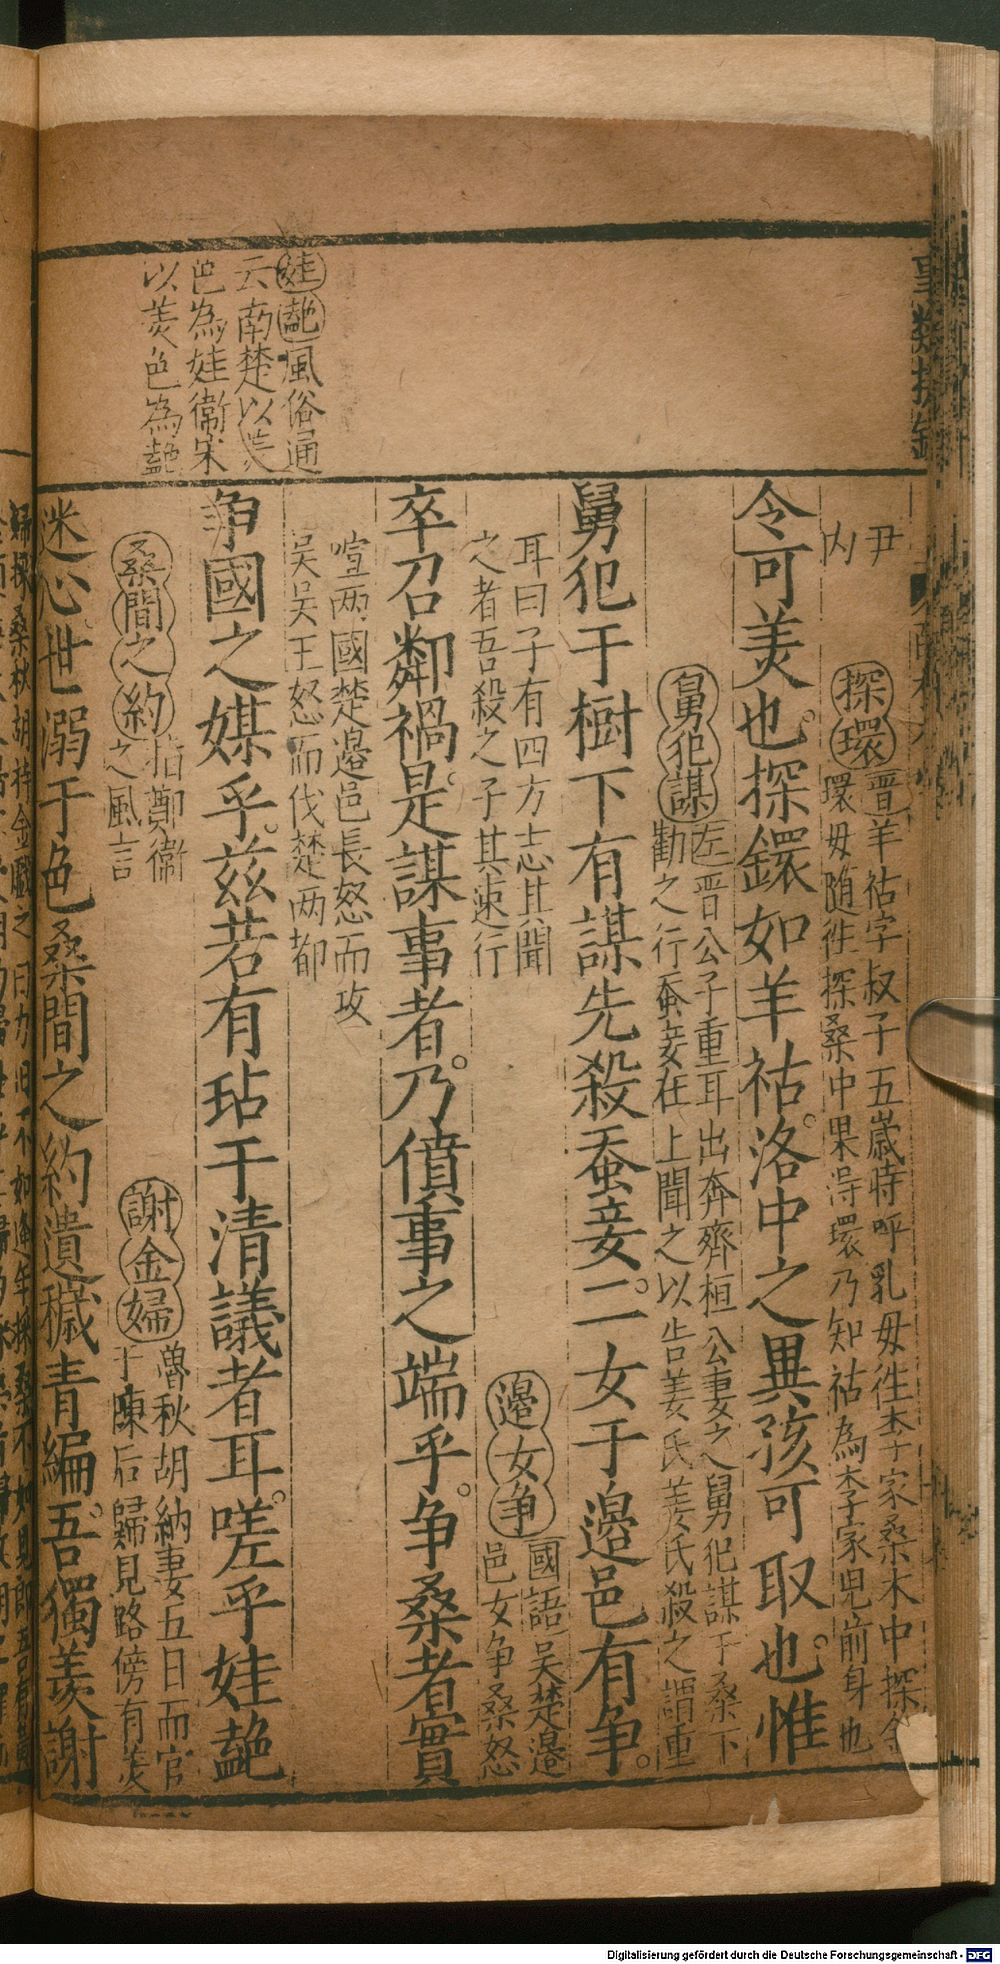 娃艶風俗通
云南楚以羙
色為娃衛宋
以羙色為艶
尹
探環晋羊祜字叔子五歲時呼乳母徃李家桑木中探金
環母随徃探桑中果淂環乃知祜為李家児前身也
令可羙也探鐶如羊祜洛中之異孩可取也惟
舅犯謀左晋公子重耳出奔齊桓公妻之舅犯謀于桑下
勸之行蚕妾在上聞之以告姜氏姜氏殺之謂重
舅犯于樹下有謀先殺蚕妾二女于邉邑有争
耳曰子有四方志其聞
之者吾殺之子其速行
邉女争國語吴楚邉
邑女争桑怒
卒召鄰禍是謀事者乃僨事之端乎争桑者實
喧两國楚邉邑長怒而攻
吴吴王怒而伐楚两都
争國之媒乎兹若有玷于清議者耳嗟乎娃艶
桑間之約指鄭衛
之風言
謝金婦魯秋胡納妻五日而官
于陳后歸見路傍有羙
迷心世溺于色桑間之約遺穢青編吾獨羡謝
Digitalisierung gefördert durch die Deutsche Forschungsgemeinschaft - DFG